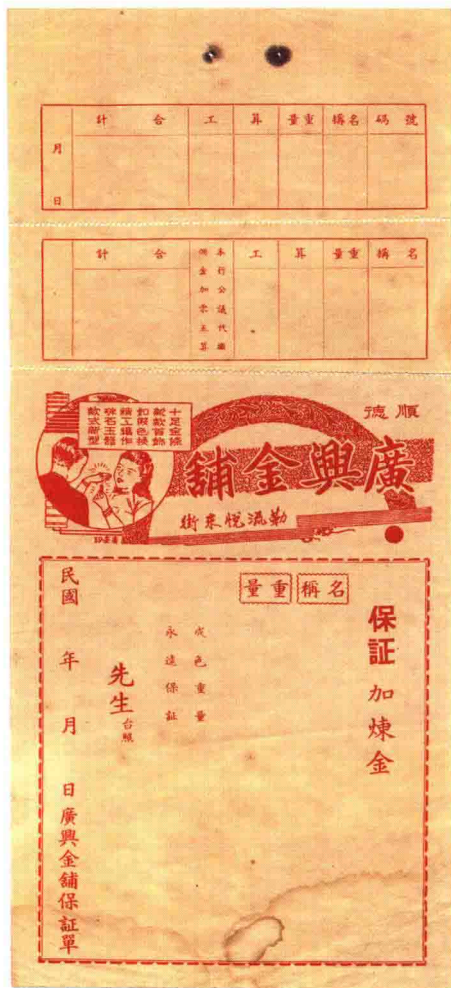 號碼 名稱 重量 算 工 合計
月 日
名稱 重量 算 工
本行公議代繼
佣金加零五算
合計
順德
廣興金舖
勒流悅來街
十足金條
新款首飾
如假包換
精工鑲作
珠石玉器
款式新型
保証加煉金
名稱 重量
成色重量
永遠保証
先生台照
民國 年 月 日廣興金舖保証單